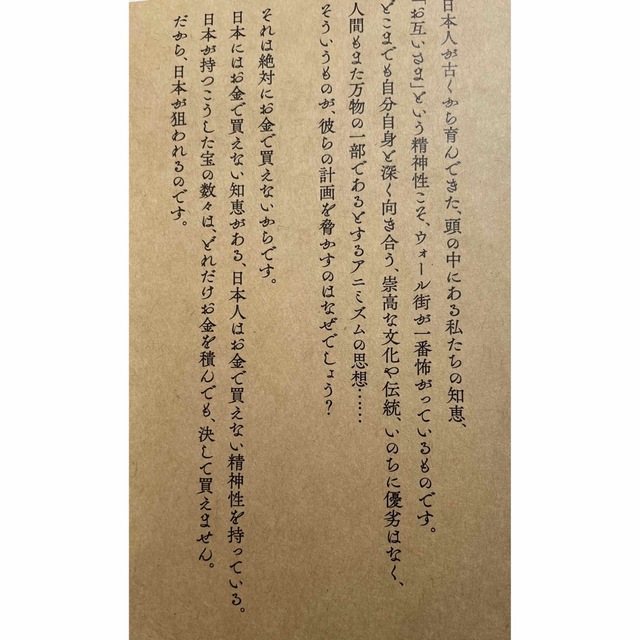 日本人が古くから育んできた、頭の中にある私たちの知恵、
「お互いさま」という精神性こそ、ウォール街が一番怖がっているものです。
どこまでも自分自身と深く向き合う、崇高な文化や伝統、いのちに優劣はなく、
人間もまた万物の一部であるとするアニミズムの思想……
そういうものが、彼らの計画を脅かすのはなぜでしょう？
それは絶対にお金で買えないからです。
日本にはお金で買えない知恵がある、日本人はお金で買えない精神性を持っている。
日本が持つこうした宝の数々は、どれだけお金を積んでも、決して買えません。
だから、日本が狙われるのです。